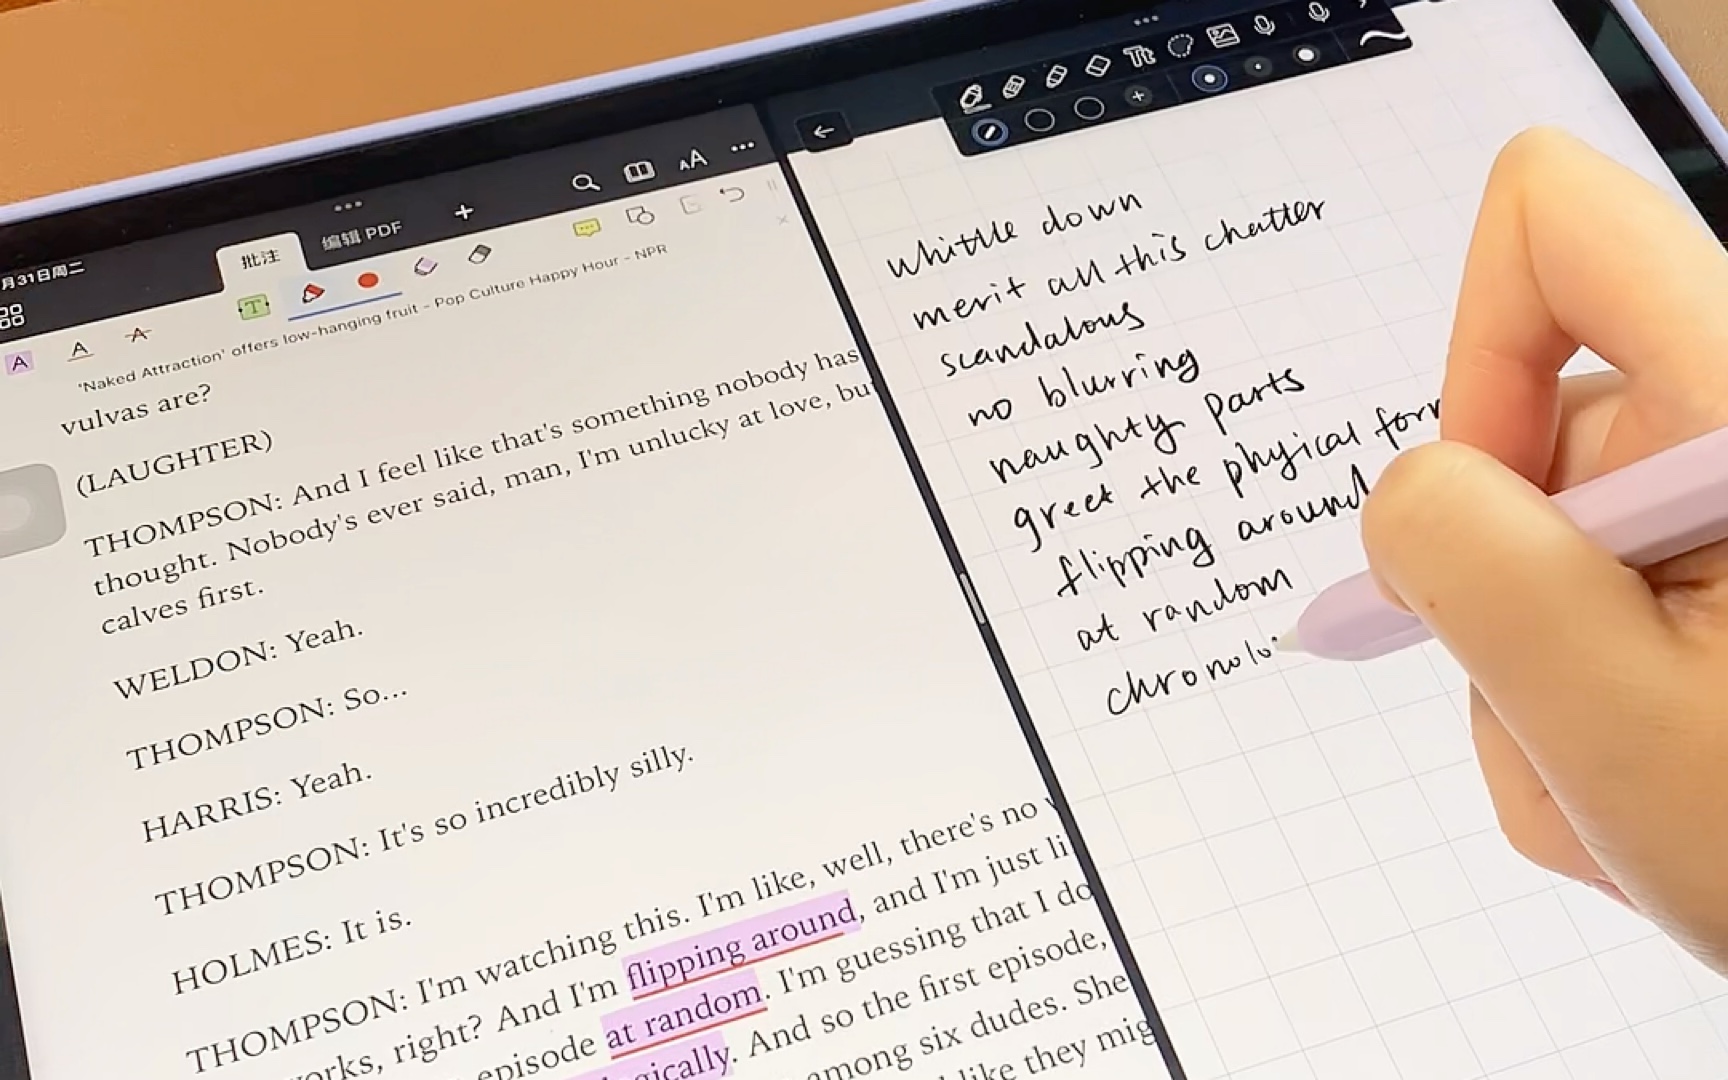 月31日周二
批注
编辑 PDF
'Naked Attraction' offers low-hanging fruit - Pop Culture Happy Hour - NPR
vulvas are?
(LAUGHTER)
THOMPSON: And I feel like that's something nobody has
thought. Nobody's ever said, man, I'm unlucky at love, bu
calves first.
WELDON: Yeah.
THOMPSON: So...
HARRIS: Yeah.
THOMPSON: It's so incredibly silly.
HOLMES: It is.
THOMPSON: I'm watching this. I'm like, well, there's no
orks, right? And I'm flipping around, and I'm just li
episode at random. I'm guessing that I do
gically. And so the first episode,
among six dudes. She
like they mig
whittle down
merit all this chatter
scandalous
no blurring
naughty parts
greet the phyical form
flipping around
at random
chronolo